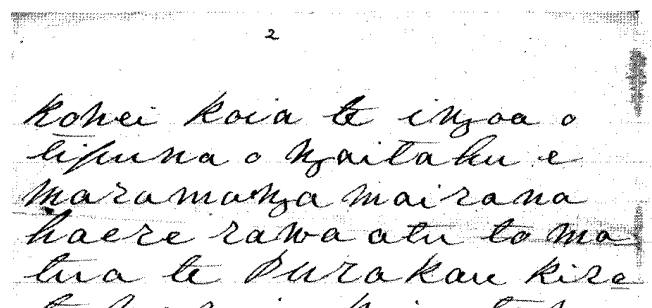 2
kohei koia te ingoa o
tipuna o ngaitahu e
maramanga mairana
haere rawa atu to ma
tua te Purakau kira